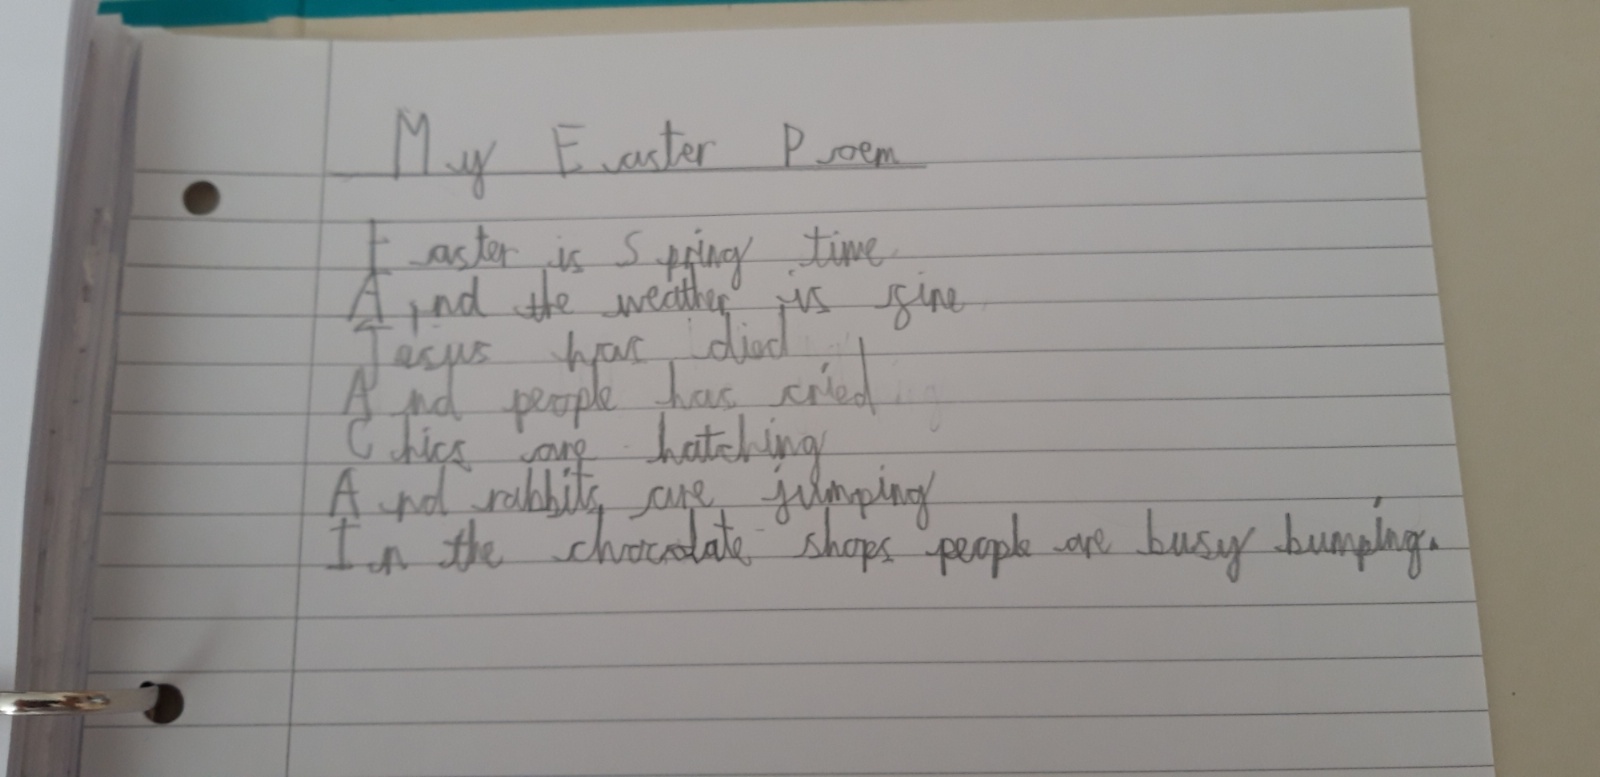 My Easter Poem
Easter is Spring time
And the weather is fine
Jesus has died
And people has cried
Chics are hatching
And rabbits are jumping
In the chocolate shops people are busy bumping.